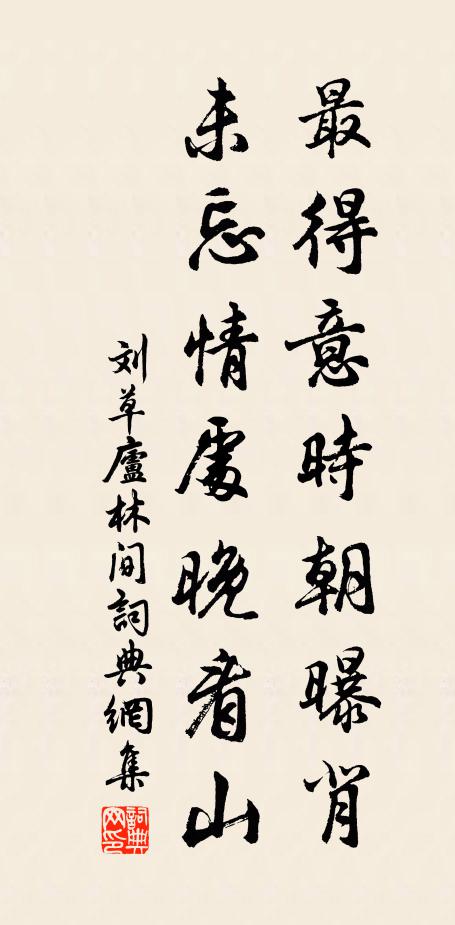 最得意時朝曝背
未忘情處晚看山
刘草廬林間詞典網集
詞典网印